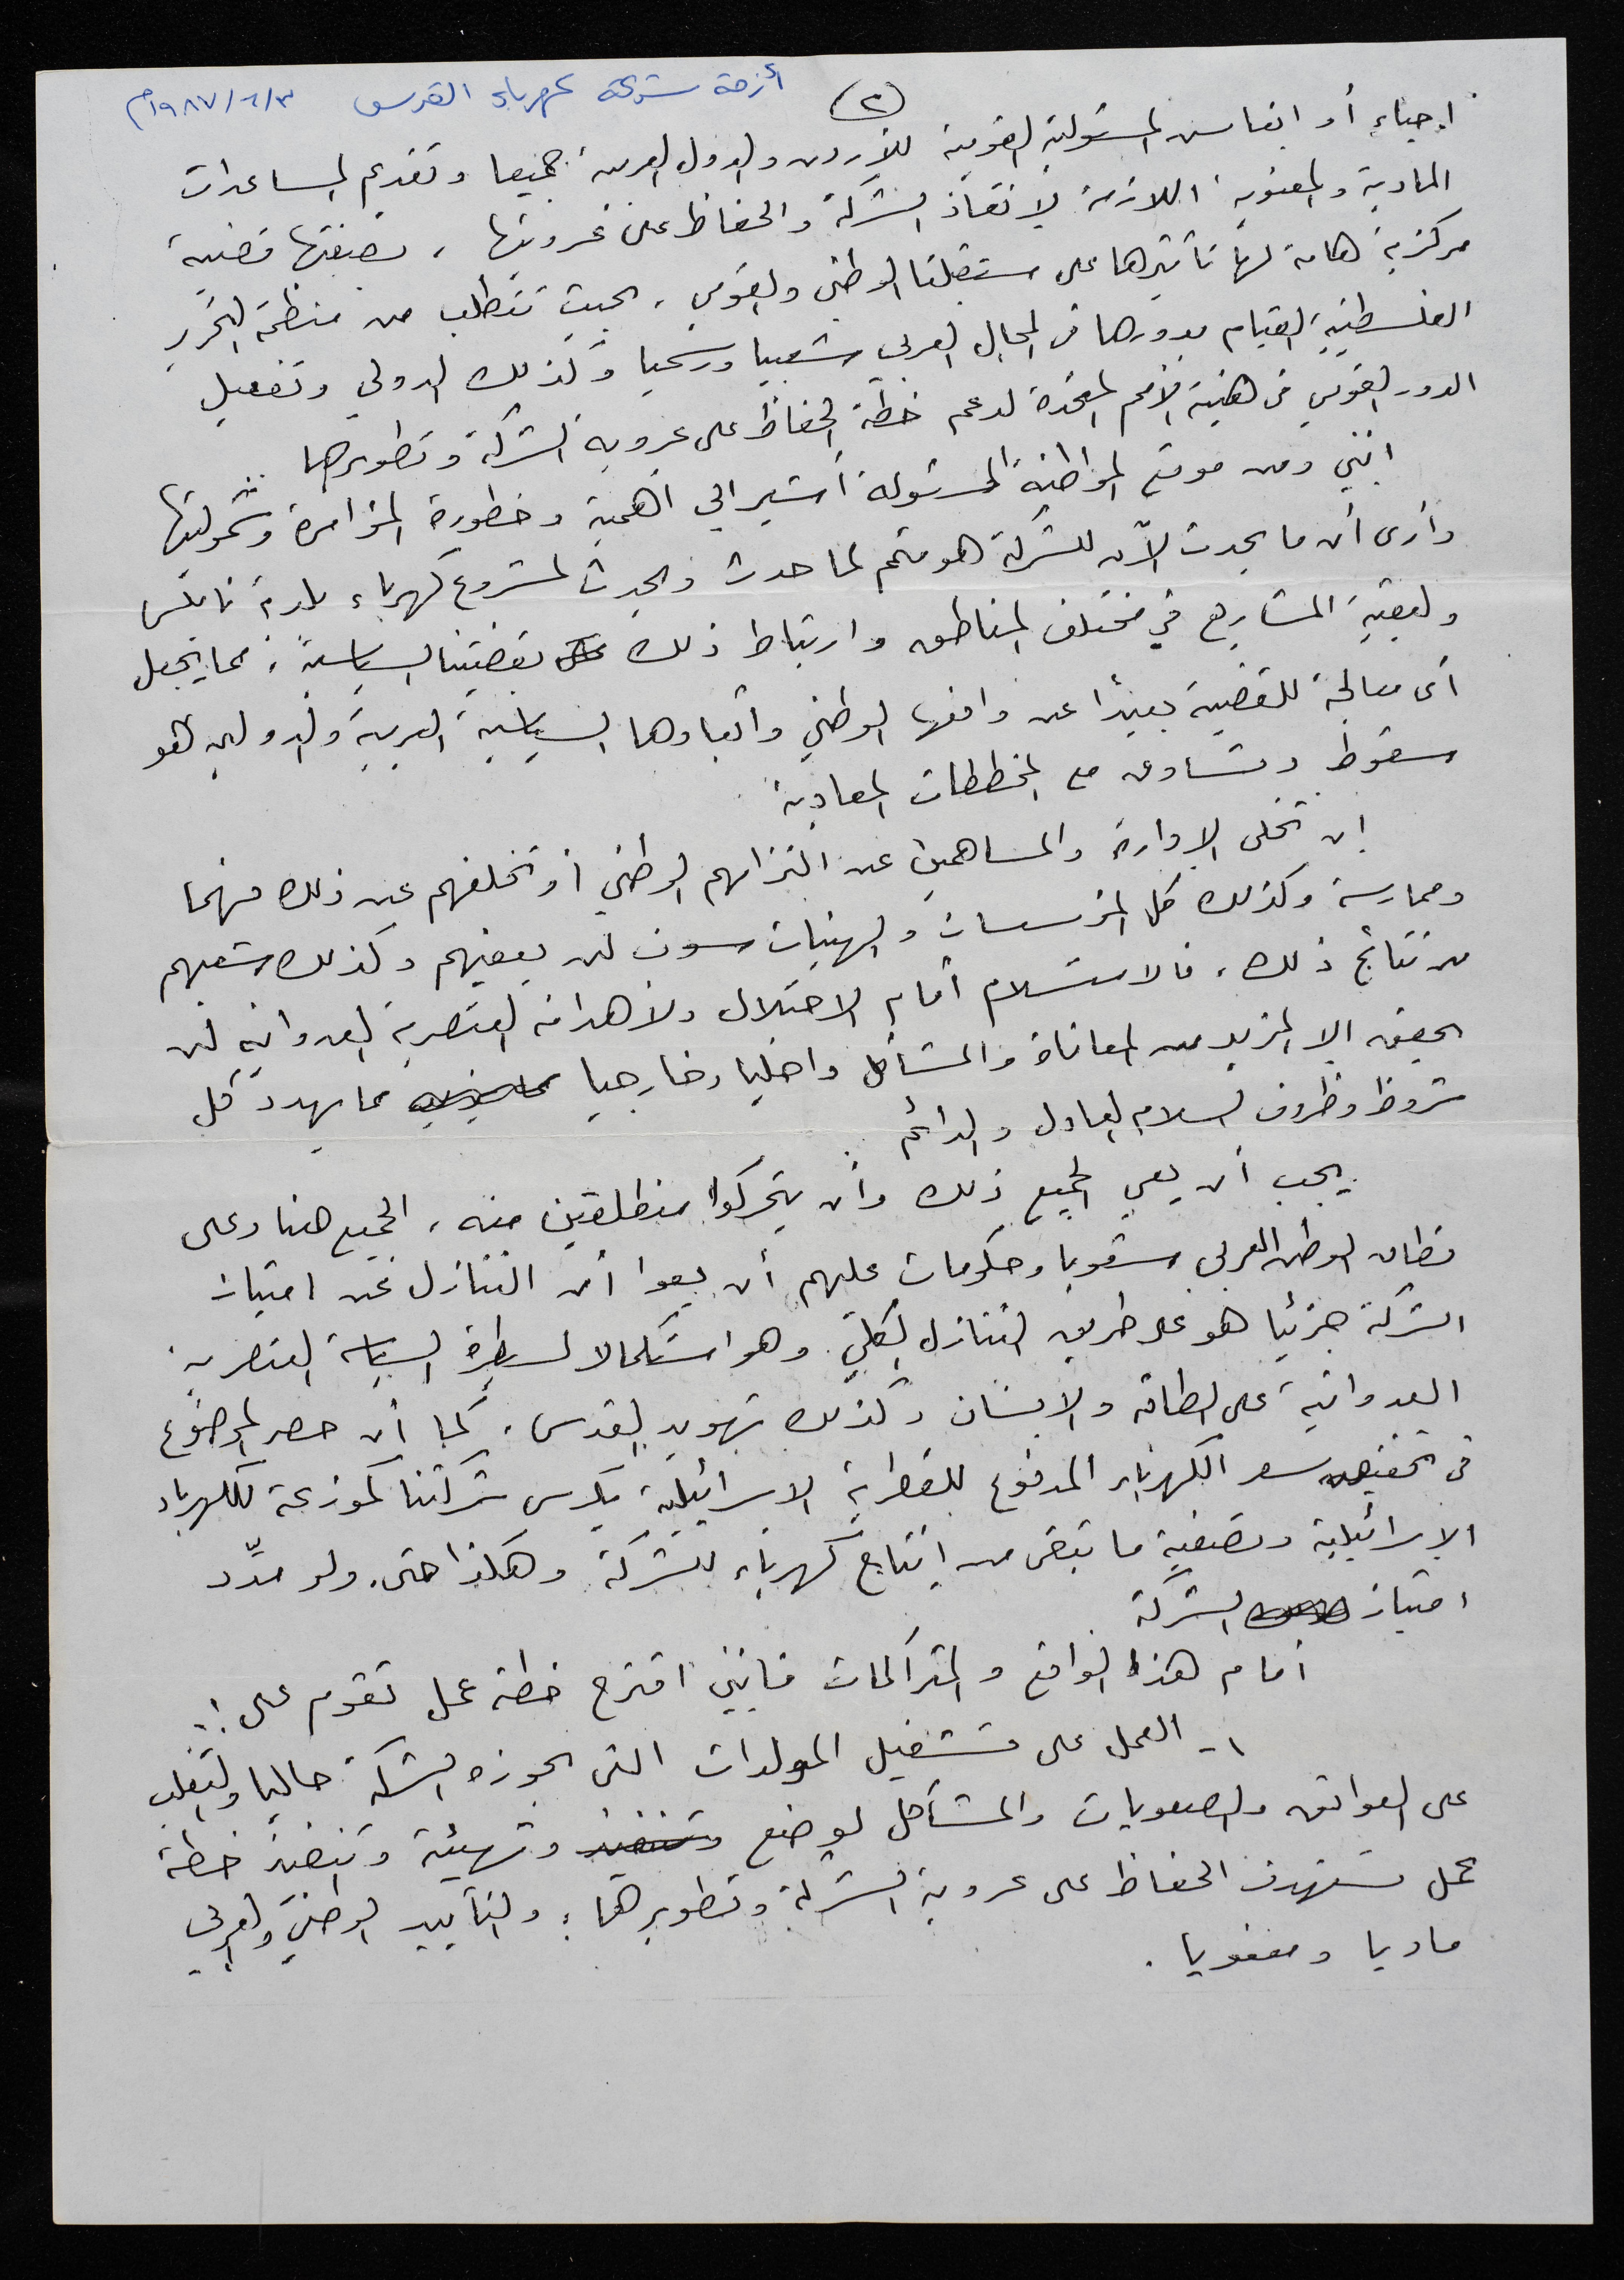 أزمة شركة كهرباء القدس ١٩٨٧/٦/٣م
(٢)
احياء أو انعاس المسئولية القومية للأردن والدول العربية جميعا وتقديم المساعدات
المادية والمعنوية اللازمة لانقاذ الشركة والحفاظ على عروبتها ، بصفتها قضية
مركزية هامة لها تأثيرها على مستقبلنا الوطني والقومي ، بحيث تتطلب من منظمة التحرير
الفلسطينية القيام بدورها في المجال العربي شعبيا ورسميا وكذلك الدولي وتفعيل
الدور القومي في هيئة الأمم المتحدة لدعم خطة الحفاظ على عروبة الشركة وتطويرها ..
انني ومن موقع المواطنة المسئولة أشير الى أهمية وخطورة المؤامرة وشموليتها
وأرى أن ما يحدث الآن للشركة هو متمم لما حدث ويحدث لمشروع كهرباء بلدية نابلس
ولبقية المشاريع في مختلف المناطق وارتباط ذلك بقضيتنا السياسية ، مما يجعل
أي معالجة للقضية بعيدًا عن واقعها الوطني وأبعادها السياسية العربية والدولية هو
سقوط وتساوق مع المخططات المعادية .
إن تخلى الإدارة والمساهمين عن التزامهم الوطني أو تخلفهم عن ذلك فهما
وممارسة وكذلك كل المؤسسات والهيئات سوف لن يعفيهم وكذلك شعبهم
من نتائج ذلك ، فالاستسلام أمام الاحتلال ولأهدافه العنصرية العدوانية لن
يحقق إلا المزيد من المعاناة والمشاكل داخليا وخارجيا مما يهدد كل
شروط وظروف السلام العادل والدائم .
يجب أن يعي الجميع ذلك وأن يتحركوا منطلقين منه ، الجميع هنا وعلى
نطاق الوطن العربي شعوبا وحكومات عليهم أن يعوا أن التنازل عن امتياز
الشركة جزئيا هو على طريق التنازل الكلي . وهو استكمالا لسيطرة السياسة العنصرية
العدوانية على الطاقة والانسان وكذلك تهويد القدس ، كما أن حصر الموضوع
في تخفيض سعر الكهرباء المدفوع للقطرية الاسرائيلية يكرس شركتنا كموزعة للكهرباء
الاسرائيلية وتصفية ما تبقى من إنتاج كهرباء للشركة وهكذا حتى ولو مدّد
امتياز الشركة
أمام هذا الواقع والمتراكمات فانني اقترح خطة عمل تقوم على :.
١- العمل على تشغيل المولدات التي بحوزة الشركة حاليا والتغلب
على العوائق والصعوبات والمشاكل لوضع وتهيئة وتنفيذ خطة
عمل تستهدف الحفاظ على عروبة الشركة وتطويرها ، والتأييد الوطني والعربي
ماديا ومعنويا .